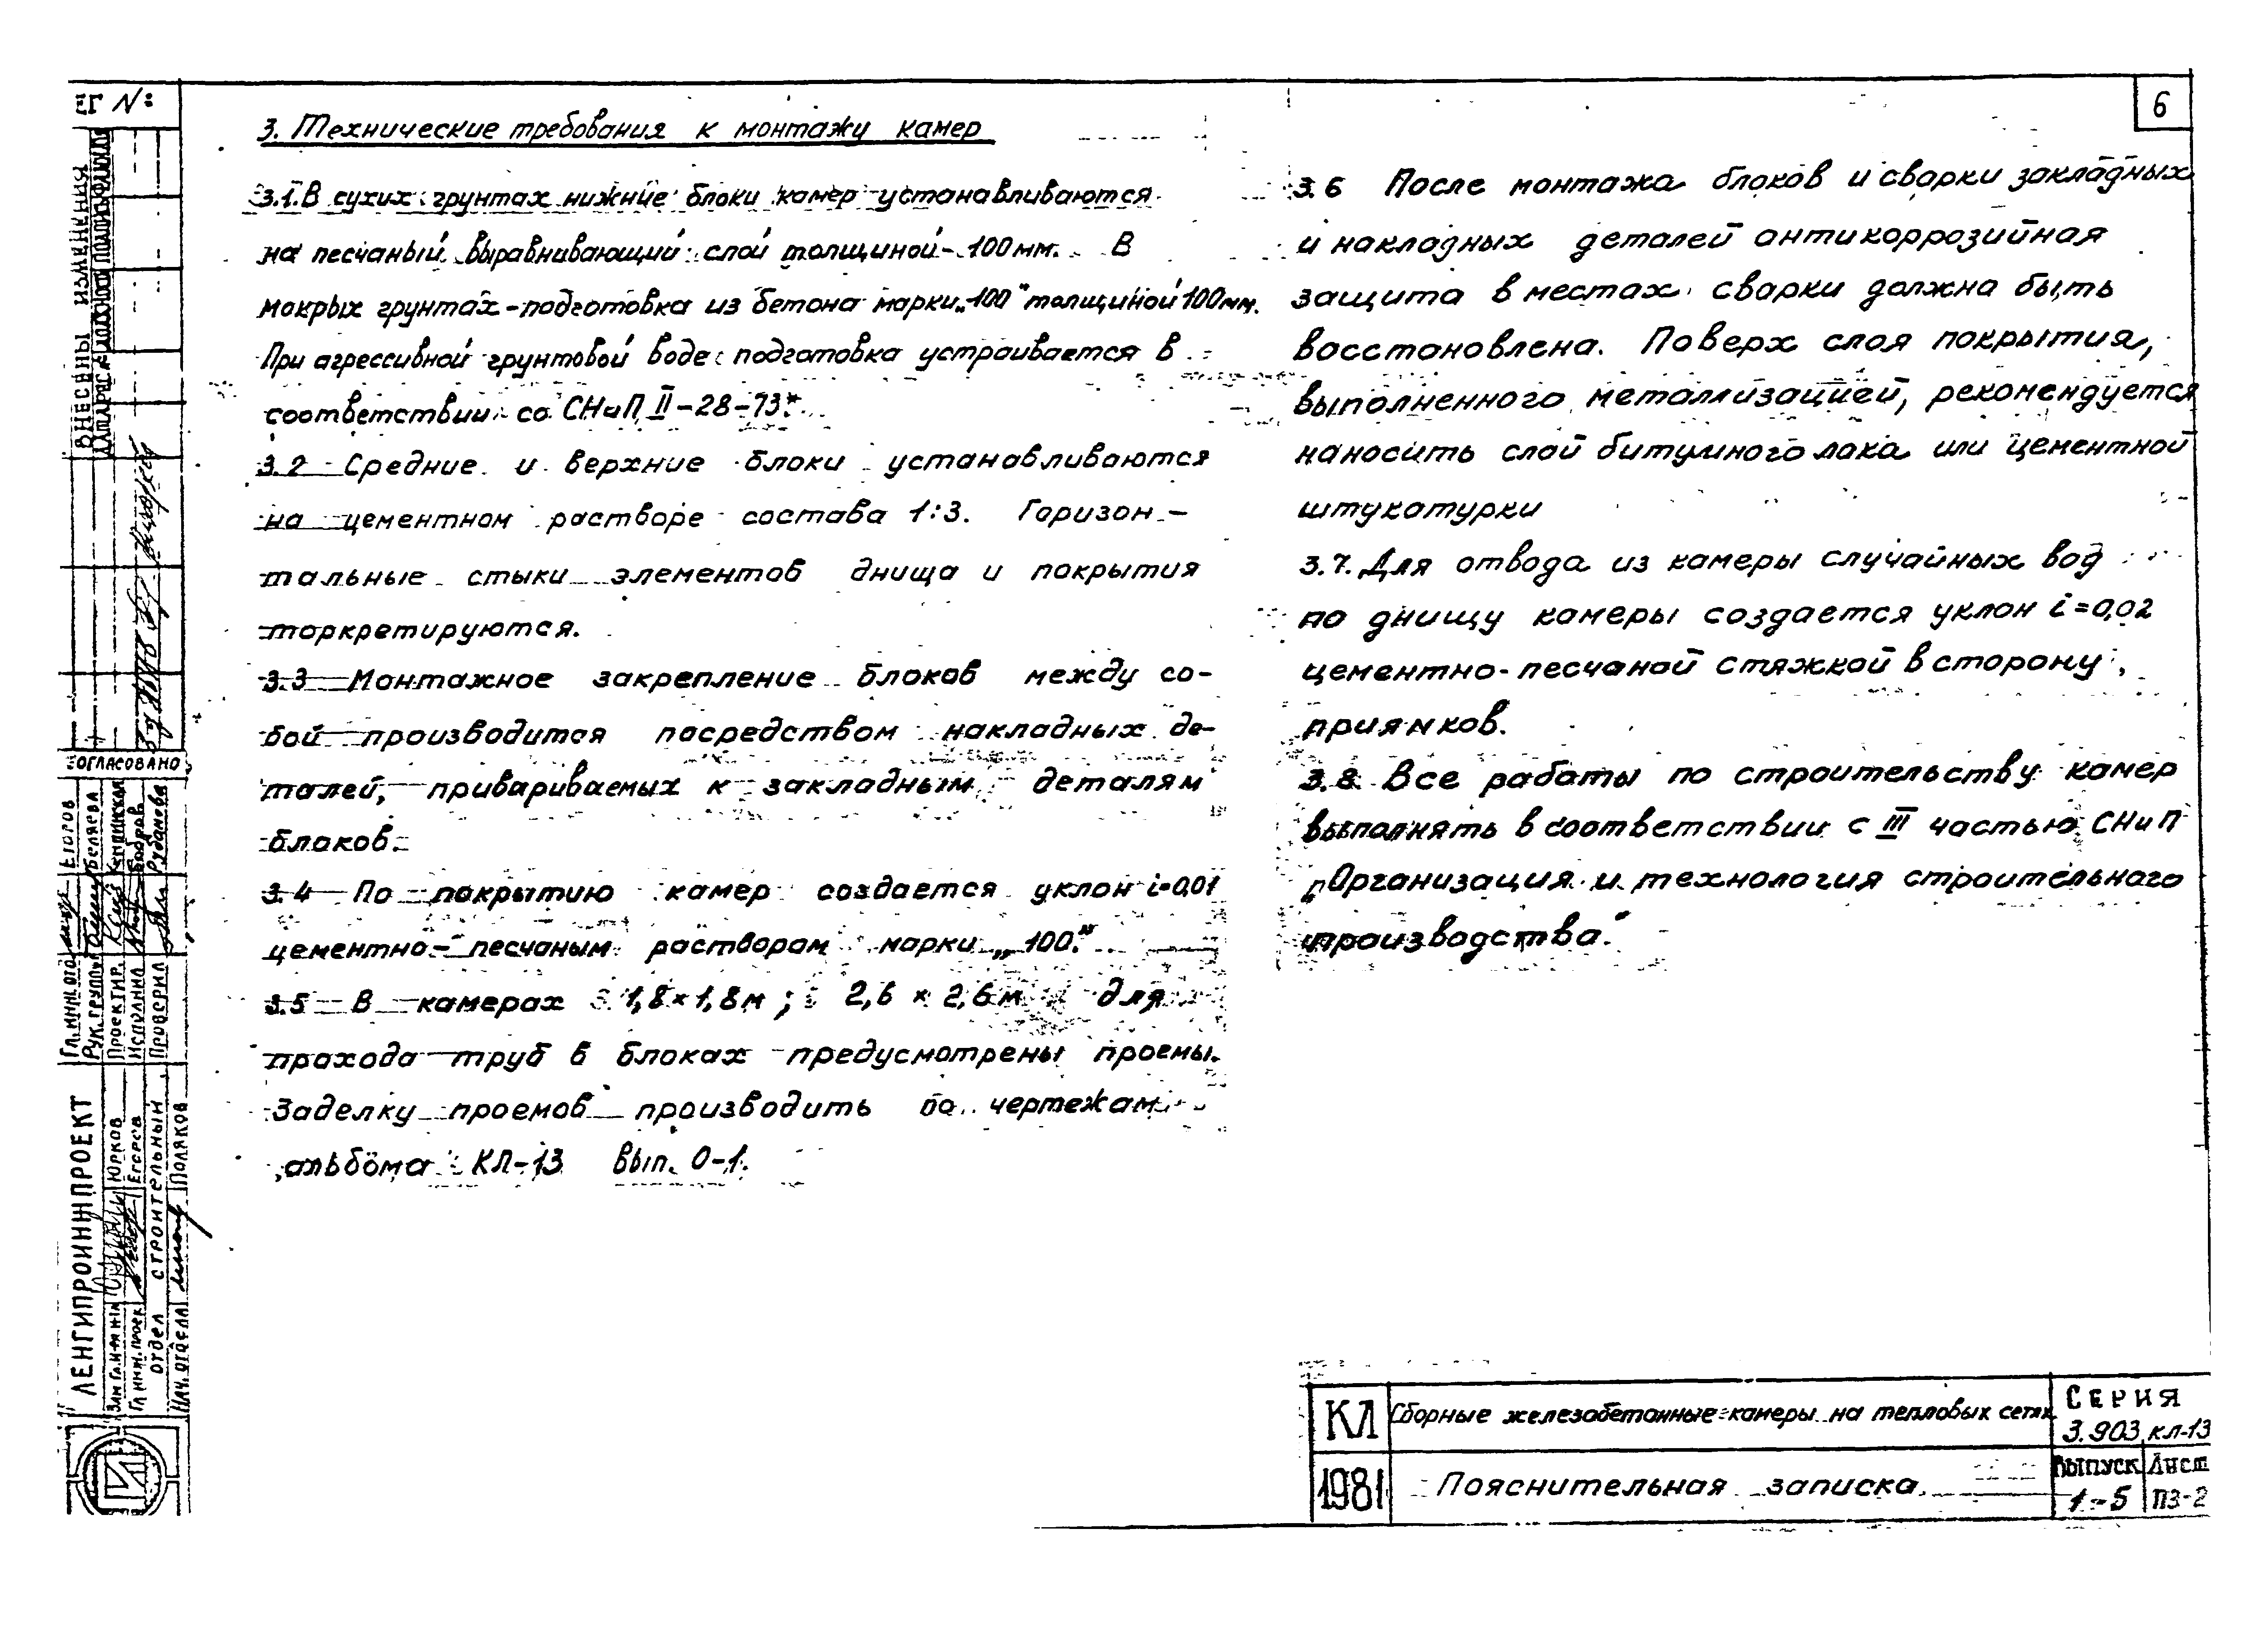 6
3. Технические требования к монтажу камер
3.1. В сухих грунтах нижние блоки камер устанавливаются
на песчаный выравнивающий слой толщиной - 100 мм. В
мокрых грунтах - подготовка из бетона марки „100" толщиной 100мм.
При агрессивной грунтовой воде подготовка устраивается в
соответствии со СНиП II-28-73*.
3.2 Средние и верхние блоки устанавливаются
на цементном растворе состава 1:3. Горизон-
тальные стыки элементов днища и покрытия
торкретируются.
3.3 Монтажное закрепление блоков между со-
бой производится посредством накладных де-
талей, привариваемых к закладным деталям
блоков.
3.4 По покрытию камер создается уклон i=0,01
цементно-песчаным раствором марки „100."
3.5 В камерах 1,8×1,8м; 2,6×2,6м для
прохода труб в блоках предусмотрены проемы.
Заделку проемов производить по чертежам
альбома КЛ-13 вып. 0-1.
3.6 После монтажа блоков и сварки закладных
и накладных деталей антикоррозийная
защита в местах сварки должна быть
восстановлена. Поверх слоя покрытия,
выполненного металлизацией, рекомендуется
наносить слой битумного лака или цементной
штукатурки
3.7. Для отвода из камеры случайных вод
по днищу камеры создается уклон i=0,02
цементно-песчаной стяжкой в сторону
приямков.
3.8. Все работы по строительству камер
выполнять в соответствии с III частью СНиП
„Организация и технология строительного
производства."
КЛ
1981
Сборные железобетонные камеры на тепловых сетях
Пояснительная записка
Серия
3.903 кл-13
Выпуск Лист
1-5 ПЗ-2
ЕГ №:
ВНЕСЕНЫ ИЗМЕНЕНИЯ
СОГЛАСОВАНО
Гл.инж.отд Егоров
Рук.группы Беляева
Проектир.
Исполнил Бобров
Проверил
ЛЕНГИПРОИНЖПРОЕКТ
Зам гл.инж ин Юрков
Гл инж.проек Егоров
отдел строительный
Нач.отдела Поляков